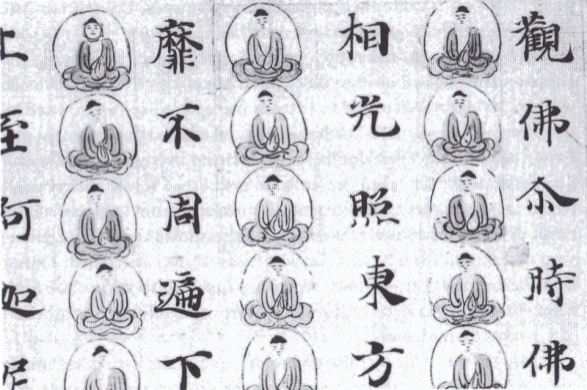 觀佛尒時佛
相光照東方
靡不周遍下
上至阿迦尼